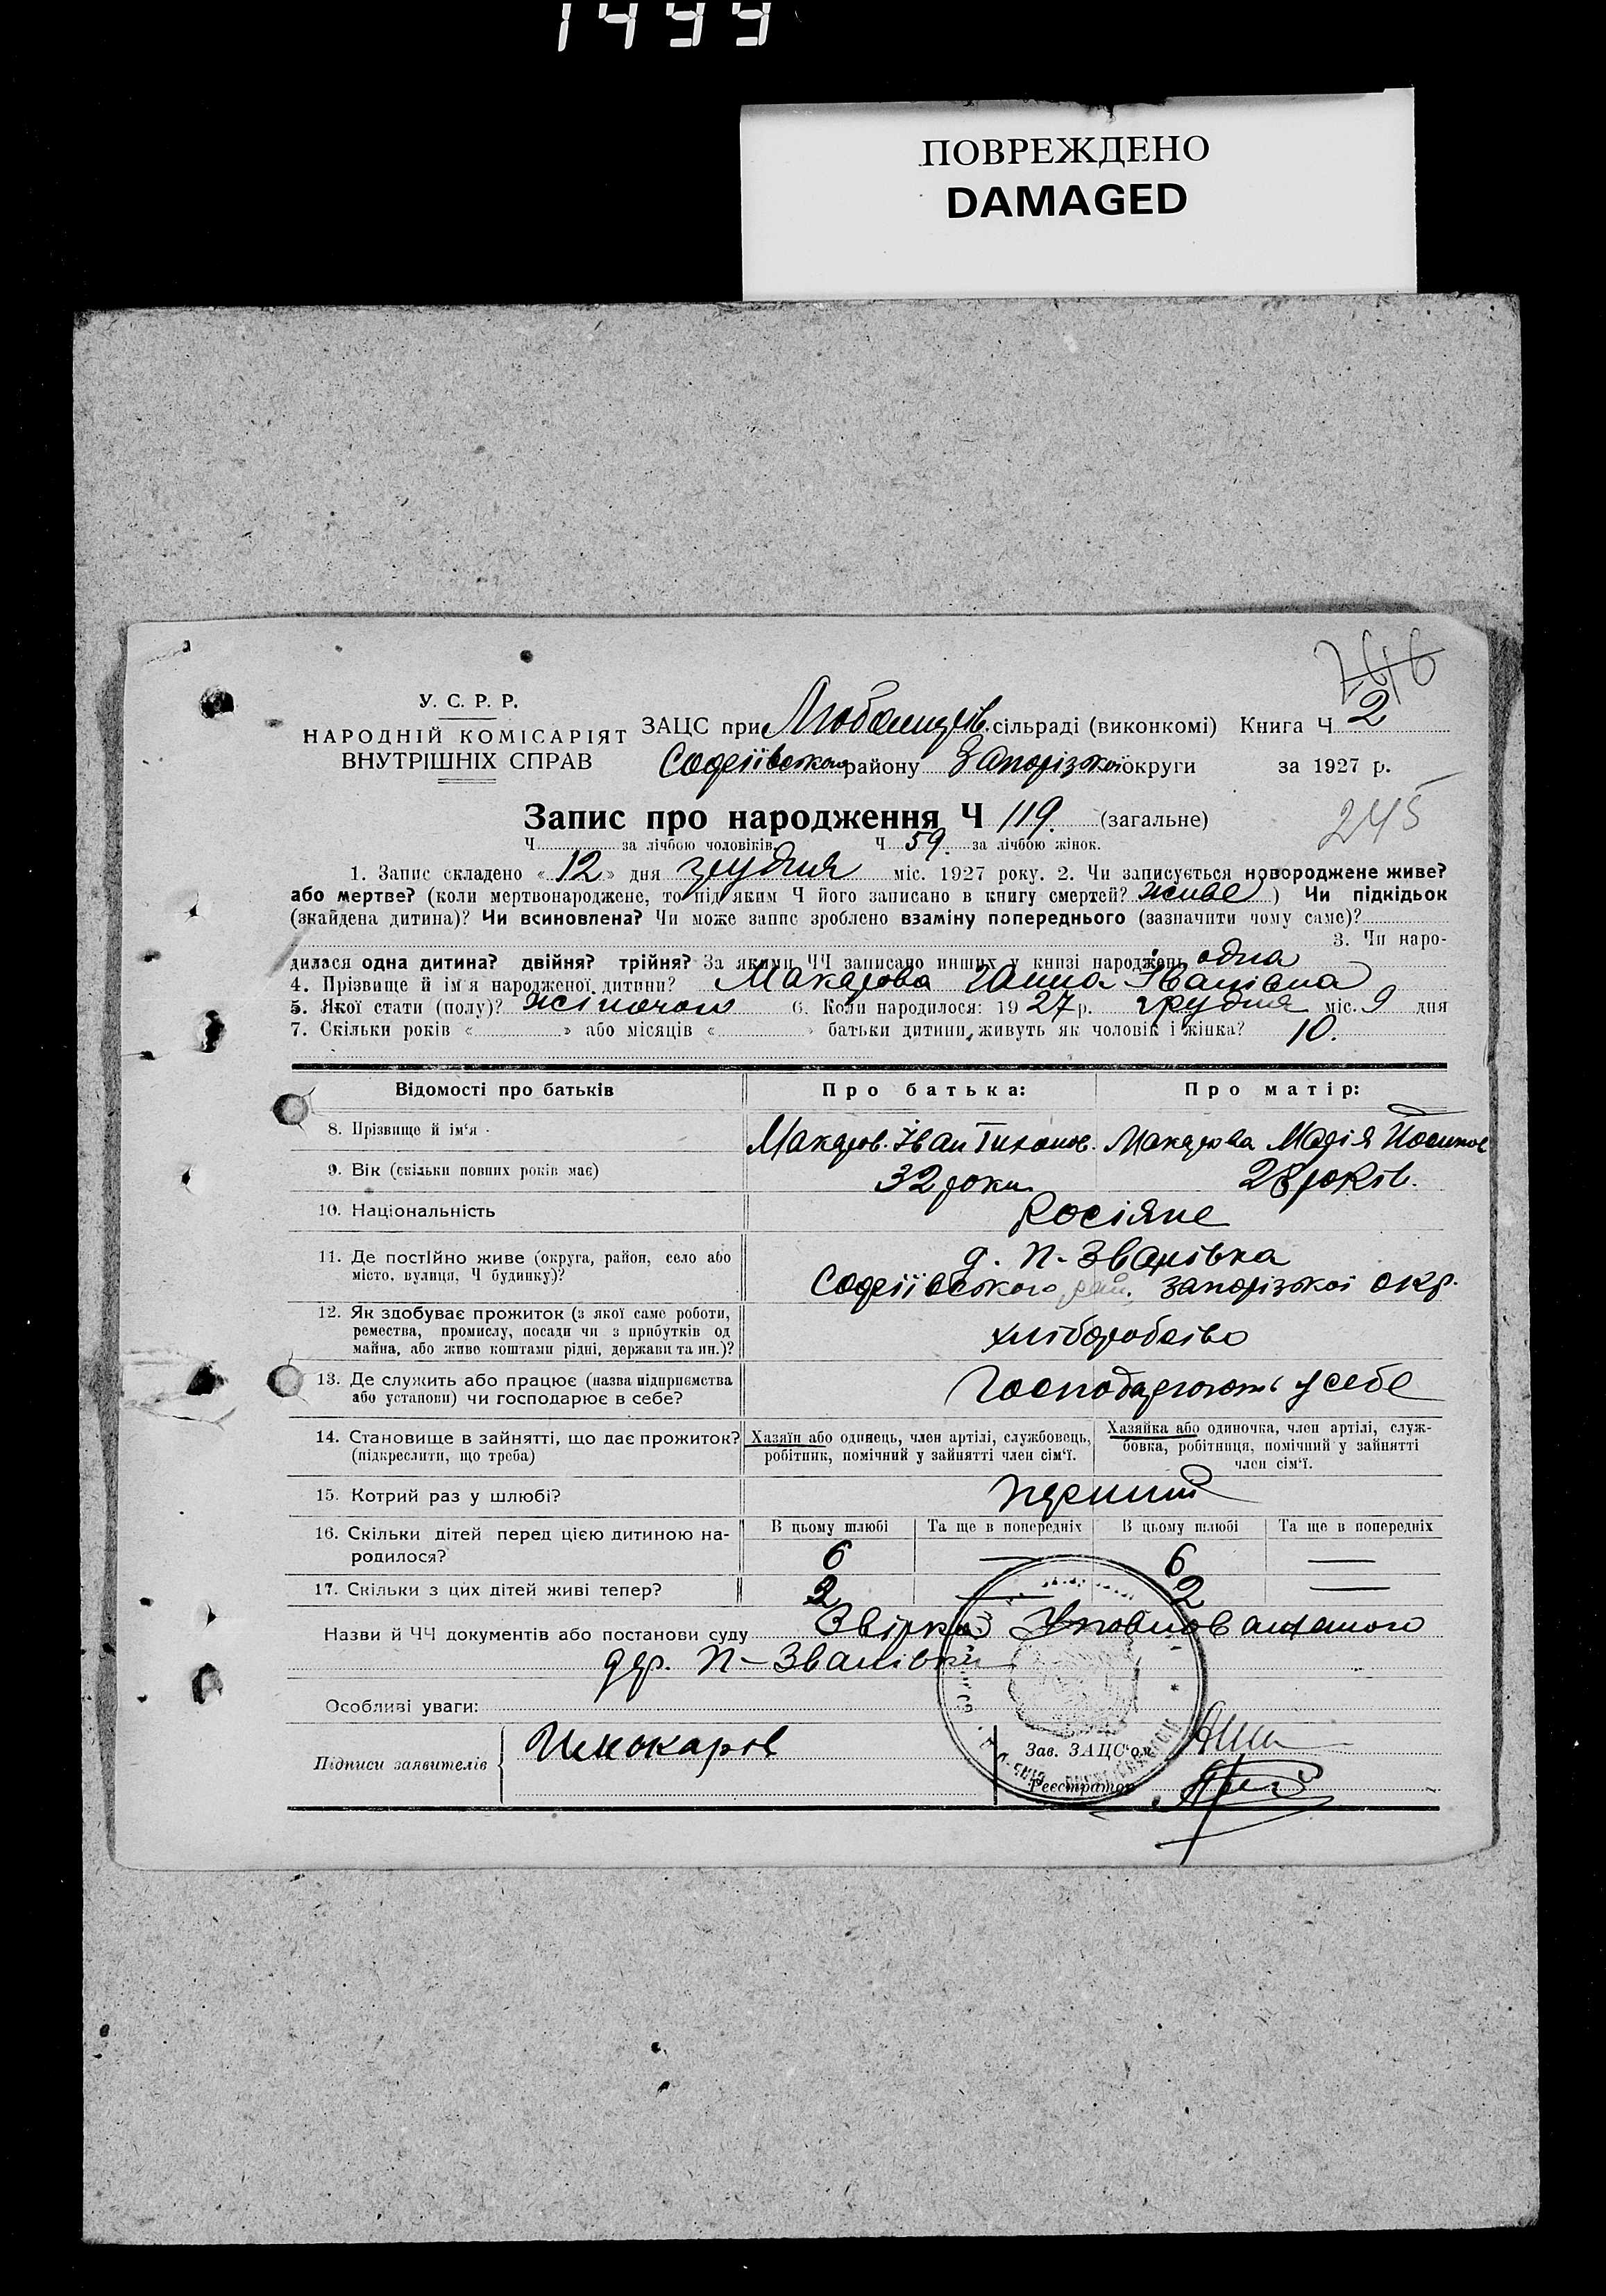 1499
ПОВРЕЖДЕНО
DAMAGED
246
У. С. Р. Р.
НАРОДНІЙ КОМІСАРІЯТ
ВНУТРІШНІХ СПРАВ
ЗАЦС при Любомирів. сільраді (виконкомі) Книга Ч 2
Софіївського району Запорізької округи за 1927 р.
Запис про народження Ч 119. (загальне)
245
Ч за лічбою чоловіків. Ч 59. за лічбою жінок.
1. Запис складено «12» дня грудня міс. 1927 року. 2. Чи записується новороджене живе?
або мертве? (коли мертвонароджене, то під яким Ч його записано в книгу смертей? живе) Чи підкідьок
(знайдена дитина)? Чи всиновлена? Чи може запис зроблено взаміну попереднього (зазначити чому саме)?
3. Чи наро-
дилася одна дитина? двійня? трійня? За якими ЧЧ записано инших у книзі народжень одна
4. Прізвище й ім'я народженої дитини? Макарова Ганна Іванівна
5. Якої стати (полу)? жіночою 6. Коли народилося: 1927 р. грудня міс. 9 дня
7. Скільки років « » або місяців « » батьки дитини живуть як чоловік і жінка? 10.
Відомості про батьків Про батька: Про матір:
8. Прізвище й ім'я Макаров. Іван Тихонов. Макарова Марія Йосипов
9. Вік (скільки повних років має) 32 роки 28 років.
10. Національність Росіяне
11. Де постійно живе (округа, район, село або
місто, вулиця, Ч будинку)?
д. П-Званівка
Софіївського рай. Запорізкої окр.
12. Як здобуває прожиток (з якої саме роботи,
ремества, промислу, посади чи з прибутків од
майна, або живе коштами рідні, держави та ин.)?
хліборобство
13. Де служить або працює (назва підприємства
або установи) чи господарює в себе?
Господарюють у себе
14. Становище в зайнятті, що дає прожиток?
(підкреслити, що треба)
Хазяїн або одинець, член артілі, службовець,
робітник, помічний у зайнятті член сім'ї.
Хазяйка або одиночка, член артілі, служ-
бовка, робітниця, помічний у зайнятті
член сім'ї.
15. Котрий раз у шлюбі? перший
16. Скільки дітей перед цією дитиною на-
родилося?
В цьому шлюбі Та ще в попередніх В цьому шлюбі Та ще в попередніх
6 — 6 —
17. Скільки з цих дітей живі тепер? 2 — 2 —
Назви й ЧЧ документів або постанови суду Звірка Уповноваженого
дер. П-Званівки
Особливі уваги:
Підписи заявителів
Зав. ЗАЦС'ом
Реєстратор